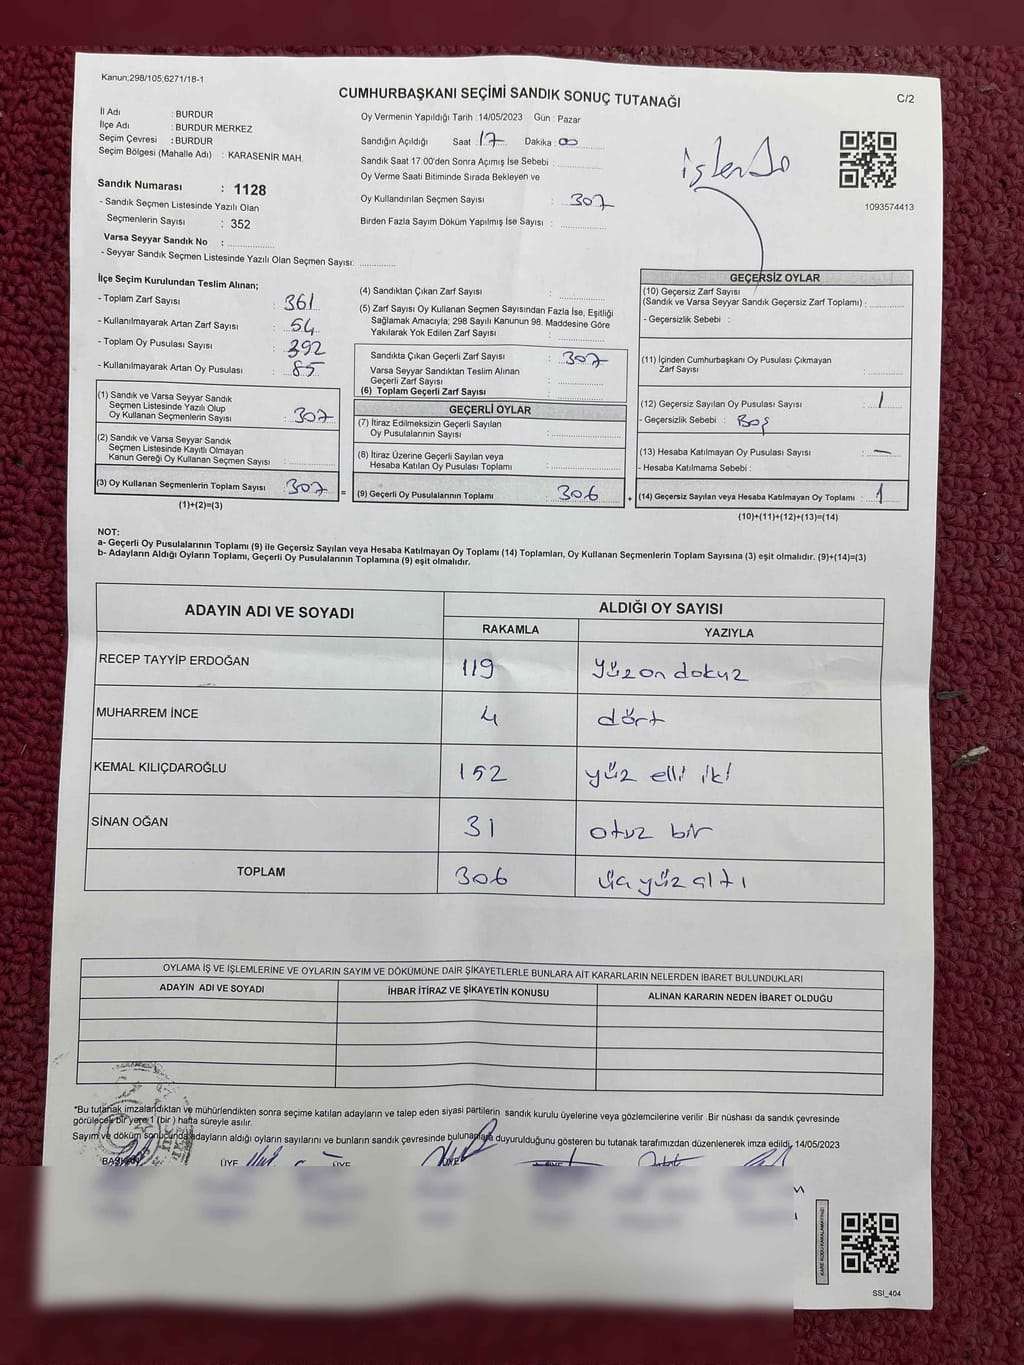 Kanun;298/105,6271/18-1
CUMHURBAŞKANI SEÇİMİ SANDIK SONUÇ TUTANAĞI
C/2
İl Adı : BURDUR
İlçe Adı : BURDUR MERKEZ
Seçim Çevresi : BURDUR
Seçim Bölgesi (Mahalle Adı) : KARASENİR MAH.
Oy Vermenin Yapıldığı Tarih : 14/05/2023 Gün : Pazar
Sandığın Açıldığı Saat : 17 Dakika : 00
Sandık Saat 17.00'den Sonra Açımış İse Sebebi :
Oy Verme Saati Bitiminde Sırada Bekleyen ve
Oy Kullandırılan Seçmen Sayısı : 307
Birden Fazla Sayım Döküm Yapılmış İse Sayısı :
işlendi
1093574413
Sandık Numarası : 1128
- Sandık Seçmen Listesinde Yazılı Olan
Seçmenlerin Sayısı : 352
Varsa Seyyar Sandık No :
- Seyyar Sandık Seçmen Listesinde Yazılı Olan Seçmen Sayısı:
İlçe Seçim Kurulundan Teslim Alınan;
- Toplam Zarf Sayısı : 361
- Kullanılmayarak Artan Zarf Sayısı : 54
- Toplam Oy Pusulası Sayısı : 392
- Kullanılmayarak Artan Oy Pusulası : 85
(1) Sandık ve Varsa Seyyar Sandık
Seçmen Listesinde Yazılı Olup
Oy Kullanan Seçmenlerin Sayısı : 307
(2) Sandık ve Varsa Seyyar Sandık
Seçmen Listesinde Kayıtlı Olmayan
Kanun Gereği Oy Kullanan Seçmen Sayısı :
(3) Oy Kullanan Seçmenlerin Toplam Sayısı : 307
(1)+(2)=(3)
=
(4) Sandıktan Çıkan Zarf Sayısı :
(5) Zarf Sayısı Oy Kullanan Seçmen Sayısından Fazla İse, Eşitliği
Sağlamak Amacıyla; 298 Sayılı Kanunun 98. Maddesine Göre
Yakılarak Yok Edilen Zarf Sayısı :
Sandıkta Çıkan Geçerli Zarf Sayısı : 307
Varsa Seyyar Sandıktan Teslim Alınan
Geçerli Zarf Sayısı :
(6) Toplam Geçerli Zarf Sayısı :
GEÇERLİ OYLAR
(7) İtiraz Edilmeksizin Geçerli Sayılan
Oy Pusulalarının Sayısı :
(8) İtiraz Üzerine Geçerli Sayılan veya
Hesaba Katılan Oy Pusulası Toplamı :
(9) Geçerli Oy Pusulalarının Toplamı : 306
+
GEÇERSİZ OYLAR
(10) Geçersiz Zarf Sayısı
(Sandık ve Varsa Seyyar Sandık Geçersiz Zarf Toplamı) :
- Geçersizlik Sebebi :
(11) İçinden Cumhurbaşkanı Oy Pusulası Çıkmayan
Zarf Sayısı :
(12) Geçersiz Sayılan Oy Pusulası Sayısı : 1
- Geçersizlik Sebebi : Boş
(13) Hesaba Katılmayan Oy Pusulası Sayısı : —
- Hesaba Katılmama Sebebi :
(14) Geçersiz Sayılan veya Hesaba Katılmayan Oy Toplamı : 1
(10)+(11)+(12)+(13)=(14)
NOT:
a- Geçerli Oy Pusulalarının Toplamı (9) ile Geçersiz Sayılan veya Hesaba Katılmayan Oy Toplamı (14) Toplamları, Oy Kullanan Seçmenlerin Toplam Sayısına (3) eşit olmalıdır. (9)+(14)=(3)
b- Adayların Aldığı Oyların Toplamı, Geçerli Oy Pusulalarının Toplamına (9) eşit olmalıdır.
ADAYIN ADI VE SOYADI ALDIĞI OY SAYISI
RAKAMLA YAZIYLA
RECEP TAYYİP ERDOĞAN 119 Yüz on dokuz
MUHARREM İNCE 4 dört
KEMAL KILIÇDAROĞLU 152 yüz elli iki
SİNAN OĞAN 31 otuz bir
TOPLAM 306 üç yüz altı
OYLAMA İŞ VE İŞLEMLERİNE VE OYLARIN SAYIM VE DÖKÜMÜNE DAİR ŞİKAYETLERLE BUNLARA AİT KARARLARIN NELERDEN İBARET BULUNDUKLARI
ADAYIN ADI VE SOYADI İHBAR İTİRAZ VE ŞİKAYETİN KONUSU ALINAN KARARIN NEDEN İBARET OLDUĞU
*Bu tutanak imzalandıktan ve mühürlendikten sonra seçime katılan adayların ve talep eden siyasi partilerin sandık kurulu üyelerine veya gözlemcilerine verilir .Bir nüshası da sandık çevresinde
görülecek bir yere 1 (bir ) hafta süreyle asılır.
Sayım ve döküm sonucunda adayların aldığı oyların sayılarını ve bunların sandık çevresinde bulunanlara duyurulduğunu gösteren bu tutanak tarafımızdan düzenlenerek imza edildi, 14/05/2023
BAŞKAN ÜYE ÜYE ÜYE
KARE KODU KARALAMAYINIZ!
SSI_404